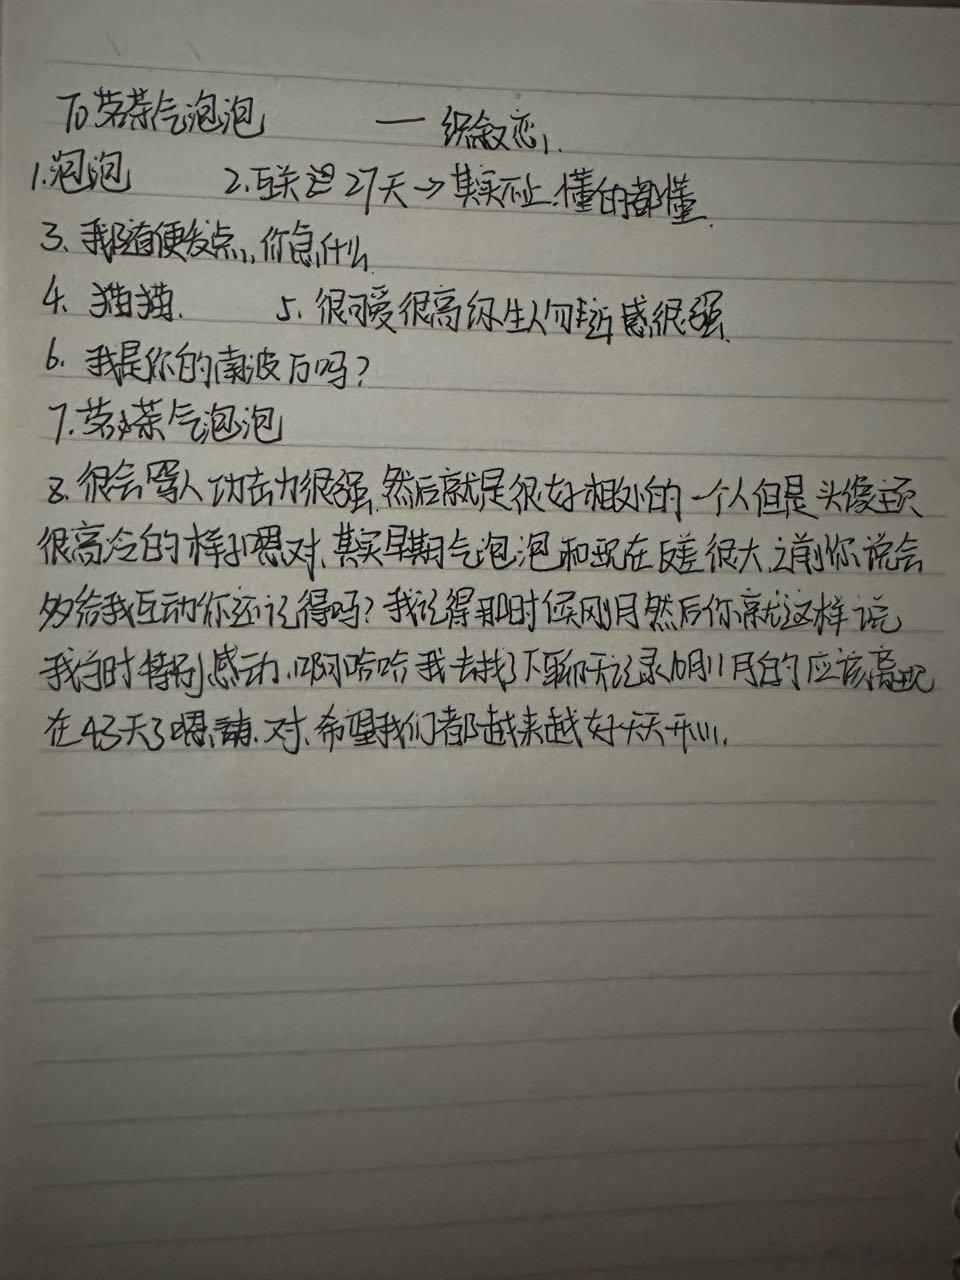 To 苦茶气泡泡 — 织叙恋.
1.泡泡 2.互关 27天→其实不止.懂的都懂.
3、我随便发点,你急什么
4、猫猫. 5、很可爱很高级生人勿近感很强.
6. 我是你的南波万吗?
7.苦茶气泡泡
8.很会骂人功击力很强,然后就是很好相处的一个人但是头像
很高冷的样子嗯对.其实早期气泡泡和现在反差很大.之前你说会
多给我互动你还记得吗?我记得那时候刚月然后你就这样说
我当时特别感动.啊哈哈我去找了下聊天记录10月11月的应该离现
在43天了嗯.对.希望我们都越来越好天天开心.